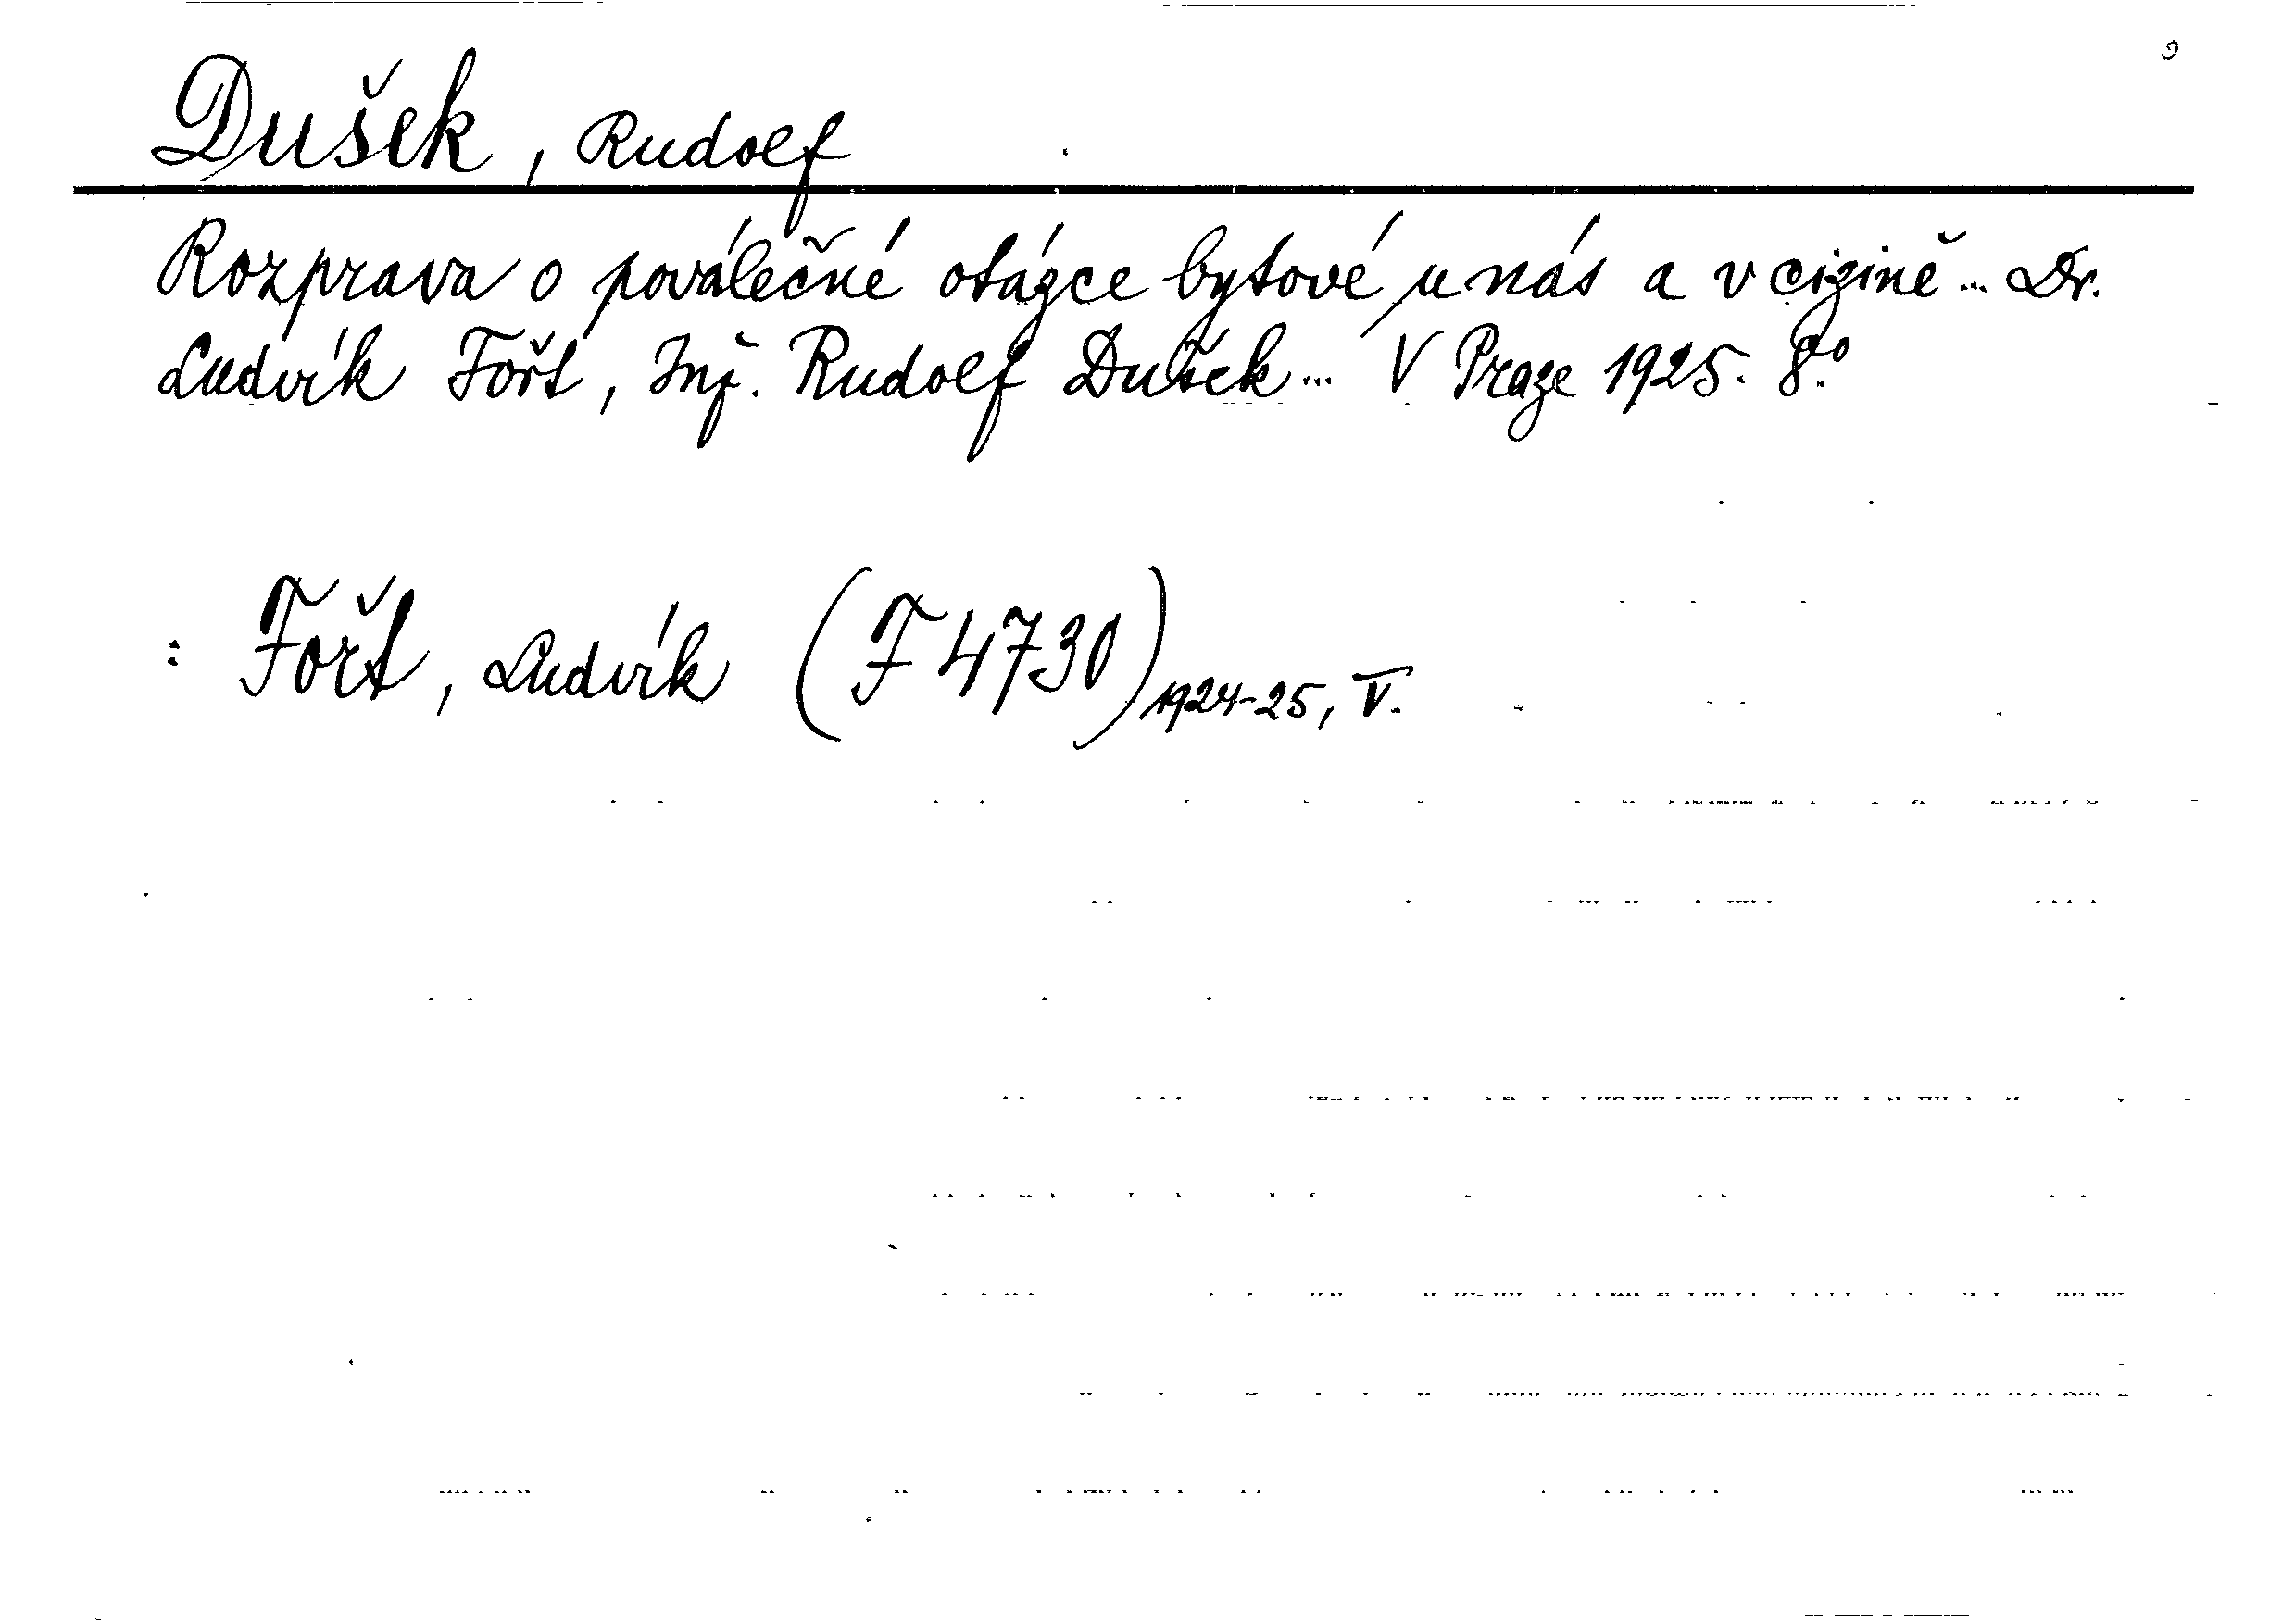 Dušek, Rudolf
Rozprava o poválečné otázce bytové u nás a v cizině... Dr.
Ludvík Fořt, Inž. Rudolf Dušek... V Praze 1925. 8.º
: Fořt, Ludvík (F 4730) 1924-25, V.